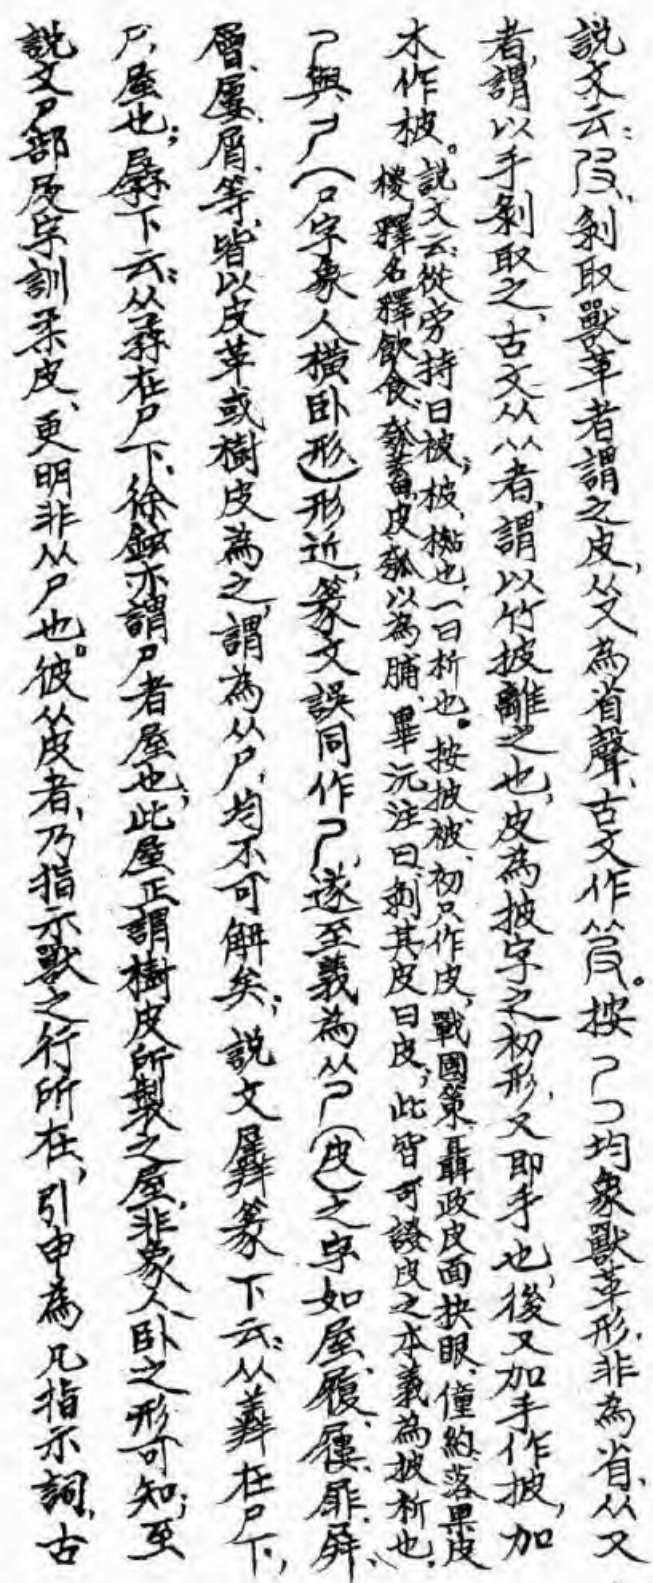 說文云：𠬝，剝取獸革者謂之皮，从又為省聲，古文作𥬖。按𠃜㇆均象獸革形，非為省，从又
者，謂以手剝取之，古文从𥫗者，謂以竹披離之也，皮為披字之初形，又即手也，後又加手作披，加
木作柀。說文云：從旁持曰披；柀，㯳也，一曰析也。按披、被初只作皮，戰國策聶政皮面抉眼、僮約落果皮
椶，釋名釋飲食，瓠蓄，皮瓠以為脯，畢沅注曰：剝其皮曰皮；此皆可證皮之本義為披析也。
𠃜與尸（尸字象人橫臥形）形近，篆文誤同作尸，遂至義為从𠃜（皮）之字如屋、履、屨、屝、屏、
層、屢、屑、等，皆以皮革或樹皮為之，謂為从尸，均不可解矣；說文羼篆下云：从羴在尸下，
尸，屋也；孱下云：从孨在尸下，徐鉉亦謂尸者屋也，此屋正謂樹皮所製之屋，非象人臥之形可知；至
說文尸部𠬝字訓柔皮，更明非从尸也。彼从皮者，乃指示獸之行所在，引申為凡指示詞，古